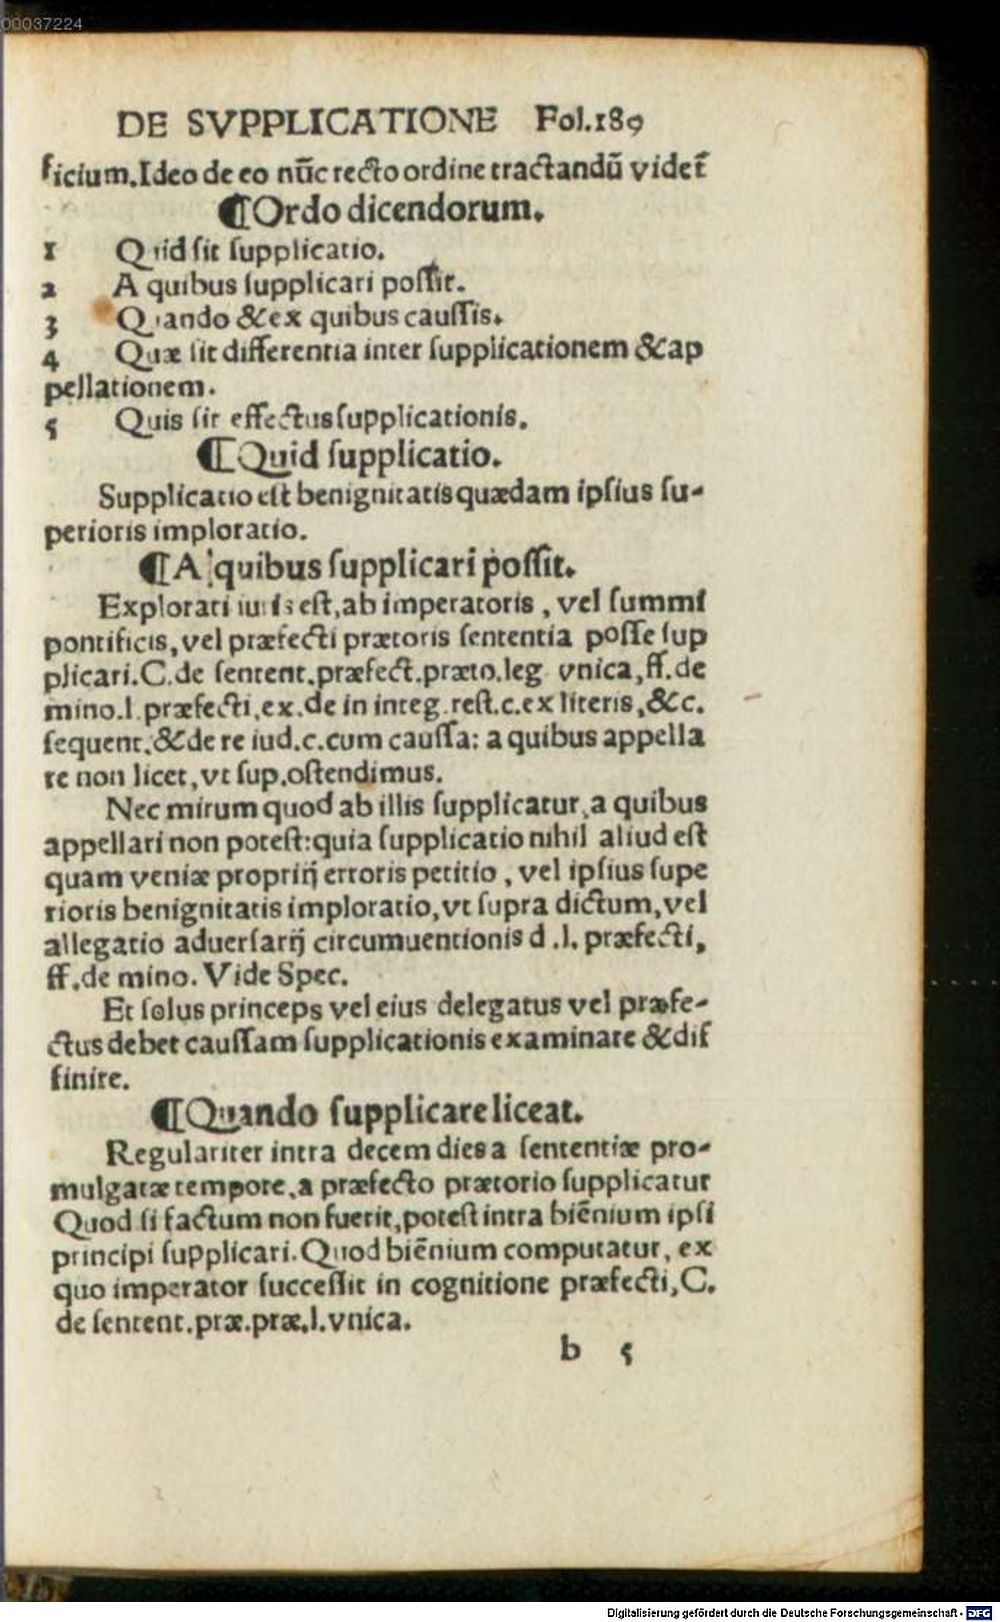 00037224
DE SVPPLICATIONE Fol.189
ficium.Ideo de eo nūc recto ordine tractandū videt̄
¶Ordo dicendorum.
1 Quid sit supplicatio.
2 A quibus supplicari possit.
3 Quando & ex quibus caussis.
4 Quæ sit differentia inter supplicationem & ap
pellationem.
5 Quis sit effectus supplicationis.
¶Quid supplicatio.
Supplicatio est benignitatis quædam ipsius su-
perioris imploratio.
¶A quibus supplicari possit.
Explorati iuris est, ab imperatoris, vel summi
pontificis, vel præfecti prætoris sententia posse sup
plicari.C.de sentent.præfect.præto.leg vnica, ff.de
mino.l.præfecti.ex.de in integ.rest.c.ex literis, &c.
sequent.& de re iud.c.cum caussa: a quibus appella
re non licet, vt sup.ostendimus.
Nec mirum quod ab illis supplicatur, a quibus
appellari non potest: quia supplicatio nihil aliud est
quam veniæ proprij erroris petitio, vel ipsius supe
rioris benignitatis imploratio, vt supra dictum, vel
allegatio aduersarij circumuentionis d.l.præfecti,
ff.de mino. Vide Spec.
Et solus princeps vel eius delegatus vel præfe-
ctus debet caussam supplicationis examinare & dif
finire.
¶Quando supplicare liceat.
Regulariter intra decem dies a sententiæ pro-
mulgatæ tempore, a præfecto prætorio supplicatur
Quod si factum non fuerit, potest intra biēnium ipsi
principi supplicari. Quod biēnium computatur, ex
quo imperator successit in cognitione præfecti, C.
de sentent.præ.præ.l.vnica.
b 5
Digitalisierung gefördert durch die Deutsche Forschungsgemeinschaft - DFG